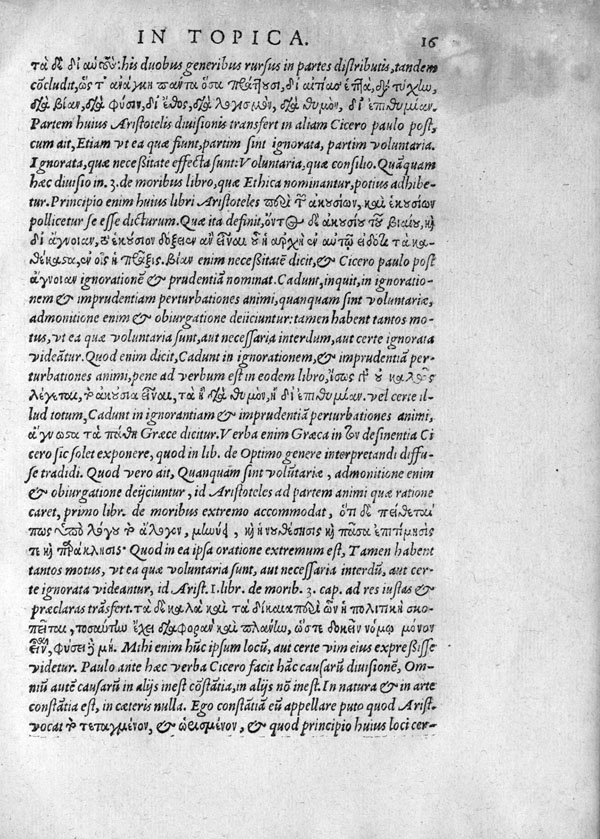 IN TOPICA. 16
τὰ δὲ δι' αὑτούς: his duobus generibus rursus in partes distributis, tandem
cōcludit, ὥςτ' ἀνάγκη πάντα ὅσα πράττουσι,
διὰ βίαν, διὰ φύσιν, δι' ἔθος, διὰ λογισμὸν, διὰ θυμὸν, δι' ἐπιθυμίαν.
Partem huius Aristotelis diuisionis transfert in aliam Cicero paulo post,
cum ait, Etiam vt ea quæ fiunt, partim sint ignorata, partim voluntaria.
Ignorata, quæ neceßitate effecta sunt: Voluntaria, quæ consilio. Quāquam
hæc diuisio in .3. de moribus libro, quæ Ethica nominantur, potius adhibe-
tur. Principio enim huius libri Aristoteles περὶ τῶν ἀκουσίων, καὶ ἑκουσίων
pollicetur se esse dicturum. Quæ ita definit, ὄντος δὲ ἀκουσίου τοῦ βιαίου, καὶ
δι' ἄγνοιαν, τὸ ἑκούσιον δόξειεν ἂν εἶναι οὗ ἡ ἀρχὴ ἐν αὐτῷ εἰδότι τὰ κα-
θέκαστα, ἐν οἷς ἡ πρᾶξις. βίαν enim neceßitatē dicit, & Cicero paulo post
ἄγνοιαν ignorationē & prudentiā nominat. Cadunt, inquit, in ignoratio-
nem & imprudentiam perturbationes animi, quanquam sint voluntariæ,
admonitione enim & obiurgatione deiiciuntur: tamen habent tantos mo-
tus, vt ea quæ voluntaria sunt, aut necessaria interdum, aut certe ignorata
videātur. Quod enim dicit, Cadunt in ignorationem, & imprudentiā per-
turbationes animi, pene ad verbum est in eodem libro, ἴσως γὰρ οὐ καλῶς
λέγεται, τὸ ἀκούσια εἶναι, τὰ ἢ διὰ θυμὸν, ἢ δι' ἐπιθυμίαν. vel certe il-
lud totum, Cadunt in ignorantiam & imprudentiā perturbationes animi,
ἄγνωστα τὰ πάθη Græce dicitur. Verba enim Græca in definentia Ci
cero sic solet exponere, quod in lib. de Optimo genere interpretandi diffu-
se tradidi. Quod vero ait, Quanquā sint volūtariæ, admonitione enim
& obiurgatione deijciuntur, id Aristoteles ad partem animi quæ ratione
caret, primo libr. de moribus extremo accommodat, ὅτι δὲ πείθεταί
πως ὑπὸ λόγου τὸ ἄλογον, μηνύει, καὶ ἡ νουθέτησις καὶ πᾶσα ἐπιτίμησίς
τε καὶ παράκλησις. Quod in ea ipsa oratione extremum est, Tamen habent
tantos motus, vt ea quæ voluntaria sunt, aut necessaria interdū, aut cer-
te ignorata videantur, id Arist. 1. libr. de morib. 3. cap. ad res iustas &
præclaras trāsfert. τὰ δὲ καλὰ καὶ τὰ δίκαια περὶ ὧν ἡ πολιτικὴ σκο-
πεῖται, τοσαύτην ἔχει διαφορὰν καὶ πλάνην, ὥστε δοκεῖν νόμῳ μόνον
εἶναι, φύσει δὲ μή. Mihi enim hūc ipsum locū, aut certe vim eius expreßisse
videtur. Paulo ante hæc verba Cicero facit hāc causarū diuisionē, Om-
niū autē causarū in alijs inest cōstātia, in alijs nō inest. In natura & in arte
constātia est, in cæteris nulla. Ego constātiā eū appellare puto quod Arist.
vocat τὸ τεταγμένον, & ὡρισμένον, & quod principio huius loci cer-